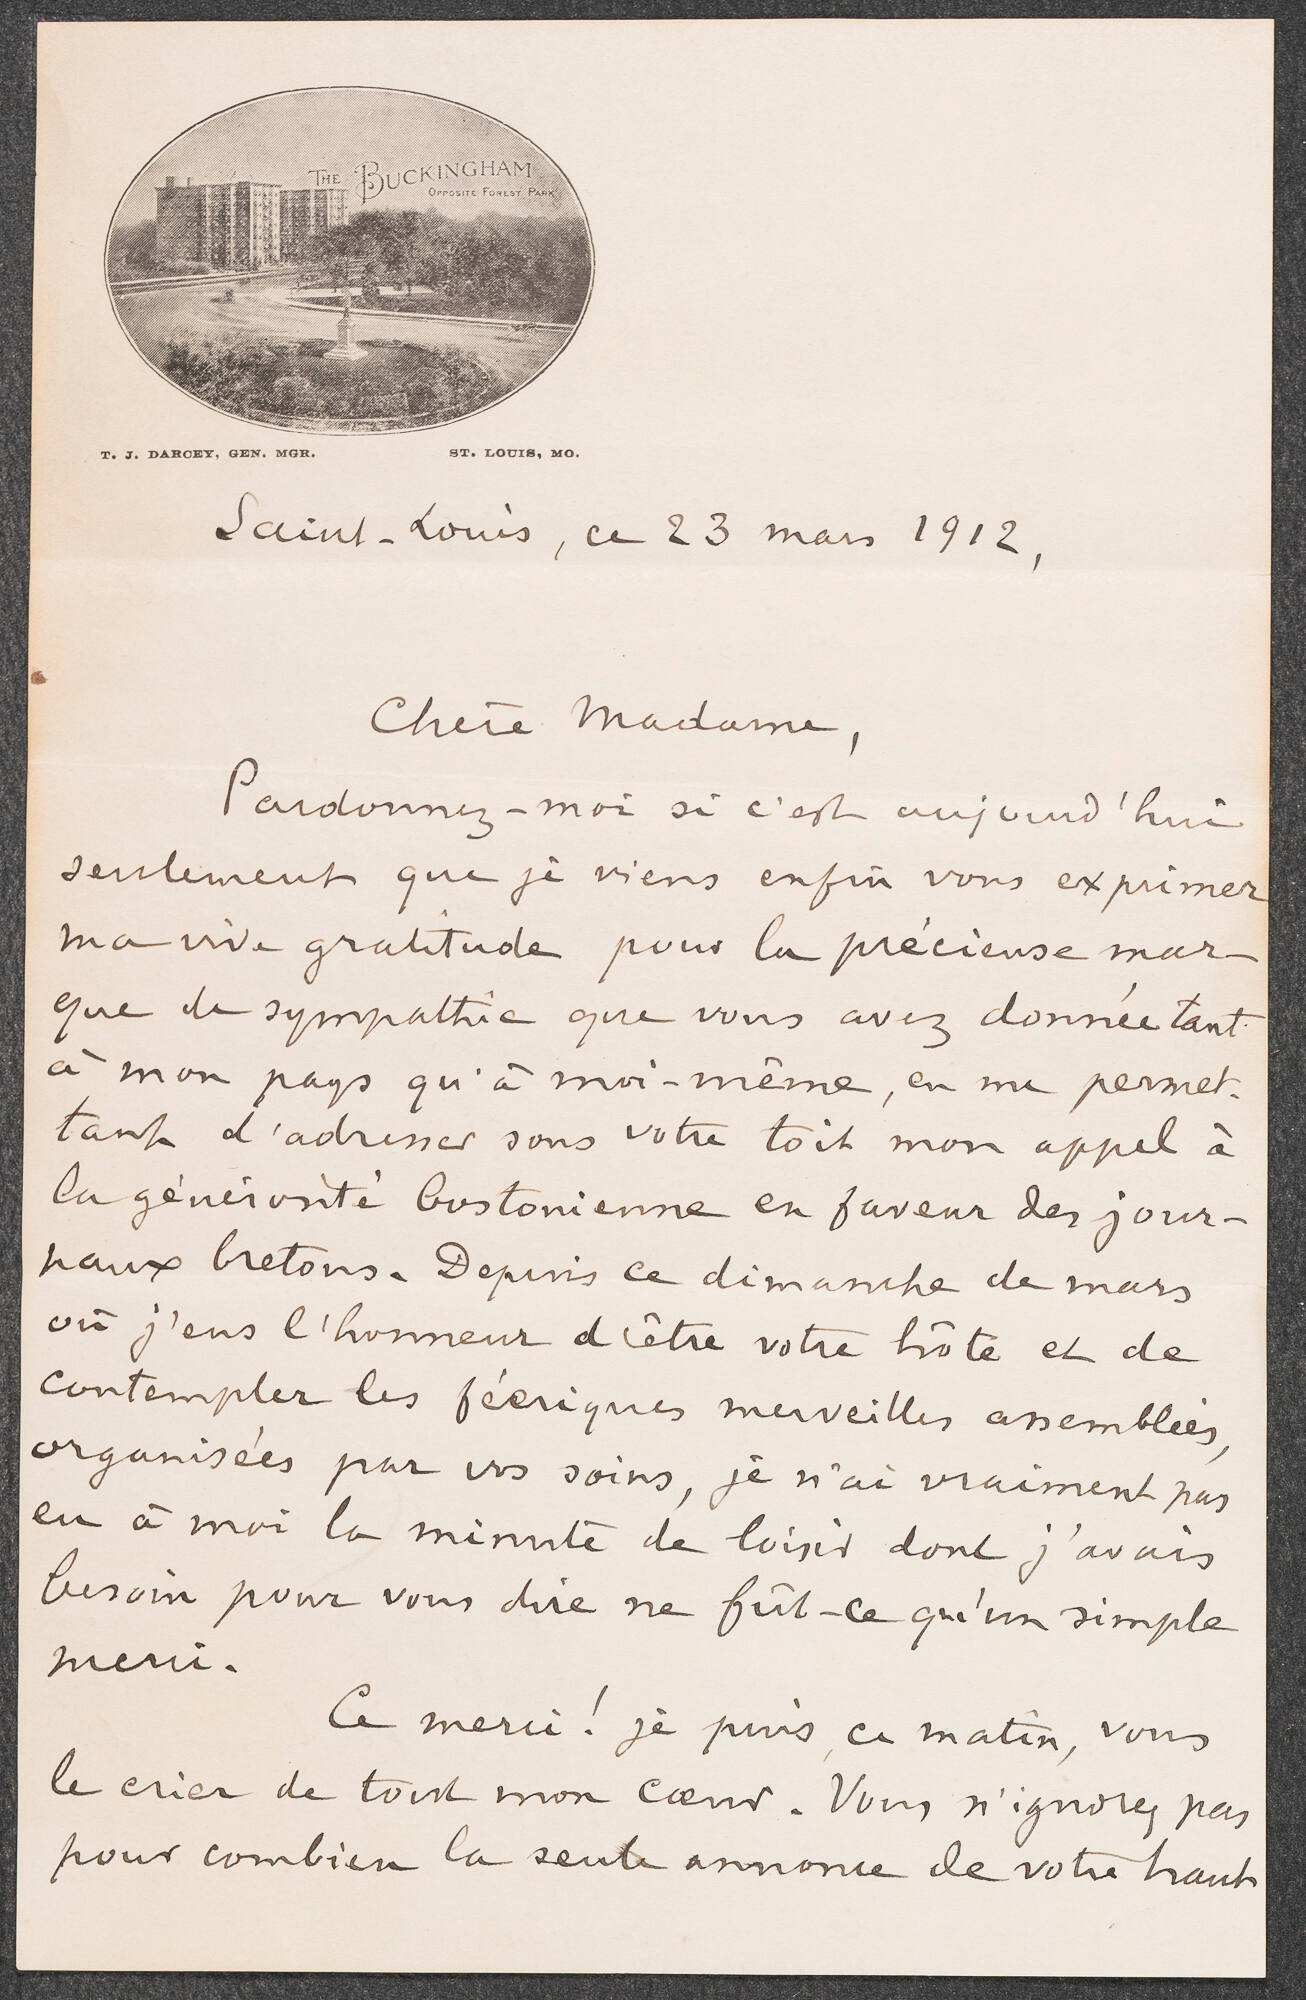 THE BUCKINGHAM
OPPOSITE FOREST PARK
T. J. DARCEY, GEN. MGR. ST. LOUIS, MO.
Saint-Louis, ce 23 mars 1912,
Chère Madame,
Pardonnez-moi si c'est aujourd'hui
seulement que je viens enfin vous exprimer
ma vive gratitude pour la précieuse mar-
que de sympathie que vous avez donnée tant
à mon pays qu'à moi-même, en me permet-
tant d'adresser sous votre toit mon appel à
la générosité bostonienne en faveur des jour-
naux bretons. Depuis ce dimanche de mars
où j'eus l'honneur d'être votre hôte et de
contempler les féeriques merveilles assemblées,
organisées par vos soins, je n'ai vraiment pas
eu à moi la minute de loisir dont j'avais
besoin pour vous dire ne fût-ce qu'un simple
merci.
Ce merci! je puis, ce matin, vous
le crier de tout mon cœur. Vous n'ignorez pas
pour combien la seule annonce de votre haut